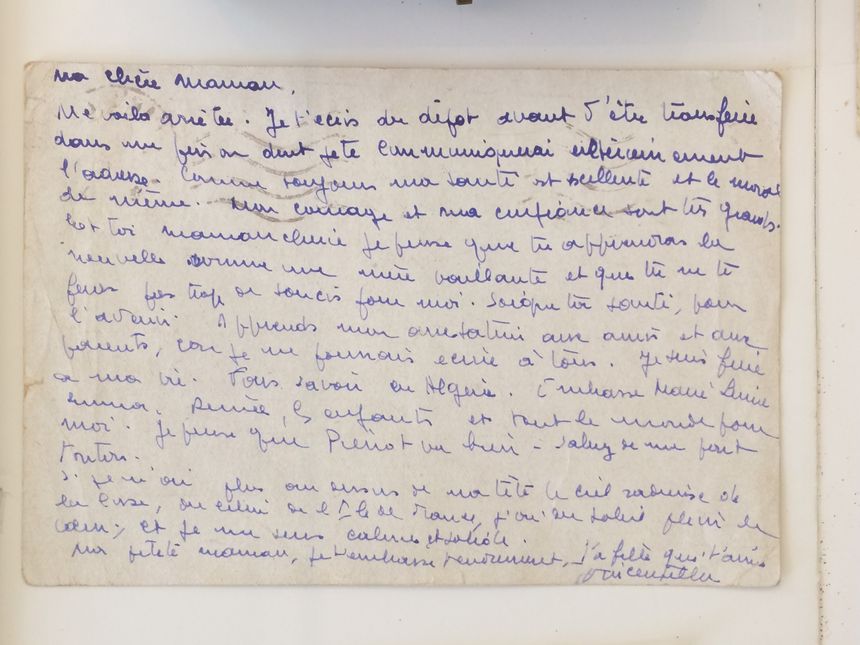 Ma chère maman,
Me voilà arrêtée. Je t'écris du dépôt avant d'être transférée
dans une prison dont je te communiquerai ultérieurement
l'adresse. Comme toujours ma santé est excellente et le moral
de même. Mon courage et ma confiance sont très grands.
Et toi maman chérie je pense que tu apprendras la
nouvelle comme une mère vaillante et que tu ne te
feras pas trop de soucis pour moi. Soigne ta santé, pour
l'avenir. Apprends mon arrestation aux amis et aux
parents, car je ne pourrais écrire à tous. Je suis fière
de ma vie. Fais savoir en Algérie. Embrasse Marie Louise
Emma, Renée, les enfants et tout le monde pour
moi. Je pense que Pierrot va bien - 
Tonton.
Si je n'ai plus au dessus de ma tête le ciel de
la Corse, ou celui de l'Ile de France, j'ai du soleil plein le
cœur, et je me sens calme et solide.
Ma petite maman, je t'embrasse tendrement, ta fille qui t'aime
Vincentella